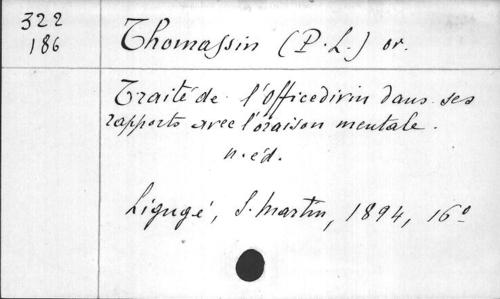 322
186
Thomassin (P. L.) or.
Traité de l'Office divin dans ses
rapports avec l'oraison mentale.
n. éd.
Ligugé, S. Martin, 1894, 16º